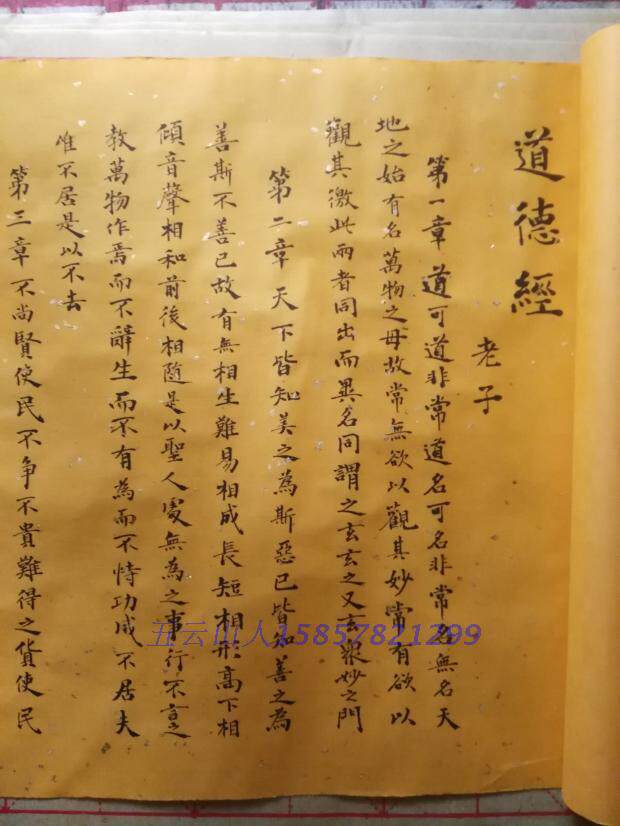 道德經
老子
第一章 道可道非常道名可名非常名無名天
地之始有名萬物之母故常無欲以觀其妙常有欲以
觀其徼此兩者同出而異名同謂之玄玄之又玄衆妙之門
第二章 天下皆知美之為斯惡已皆知善之為
善斯不善已故有無相生難易相成長短相形高下相
傾音聲相和前後相隨是以聖人處無為之事行不言之
教萬物作焉而不辭生而不有為而不恃功成不居夫
惟不居是以不去
第三章 不尚賢使民不争不貴難得之貨使民
云山人15857821299